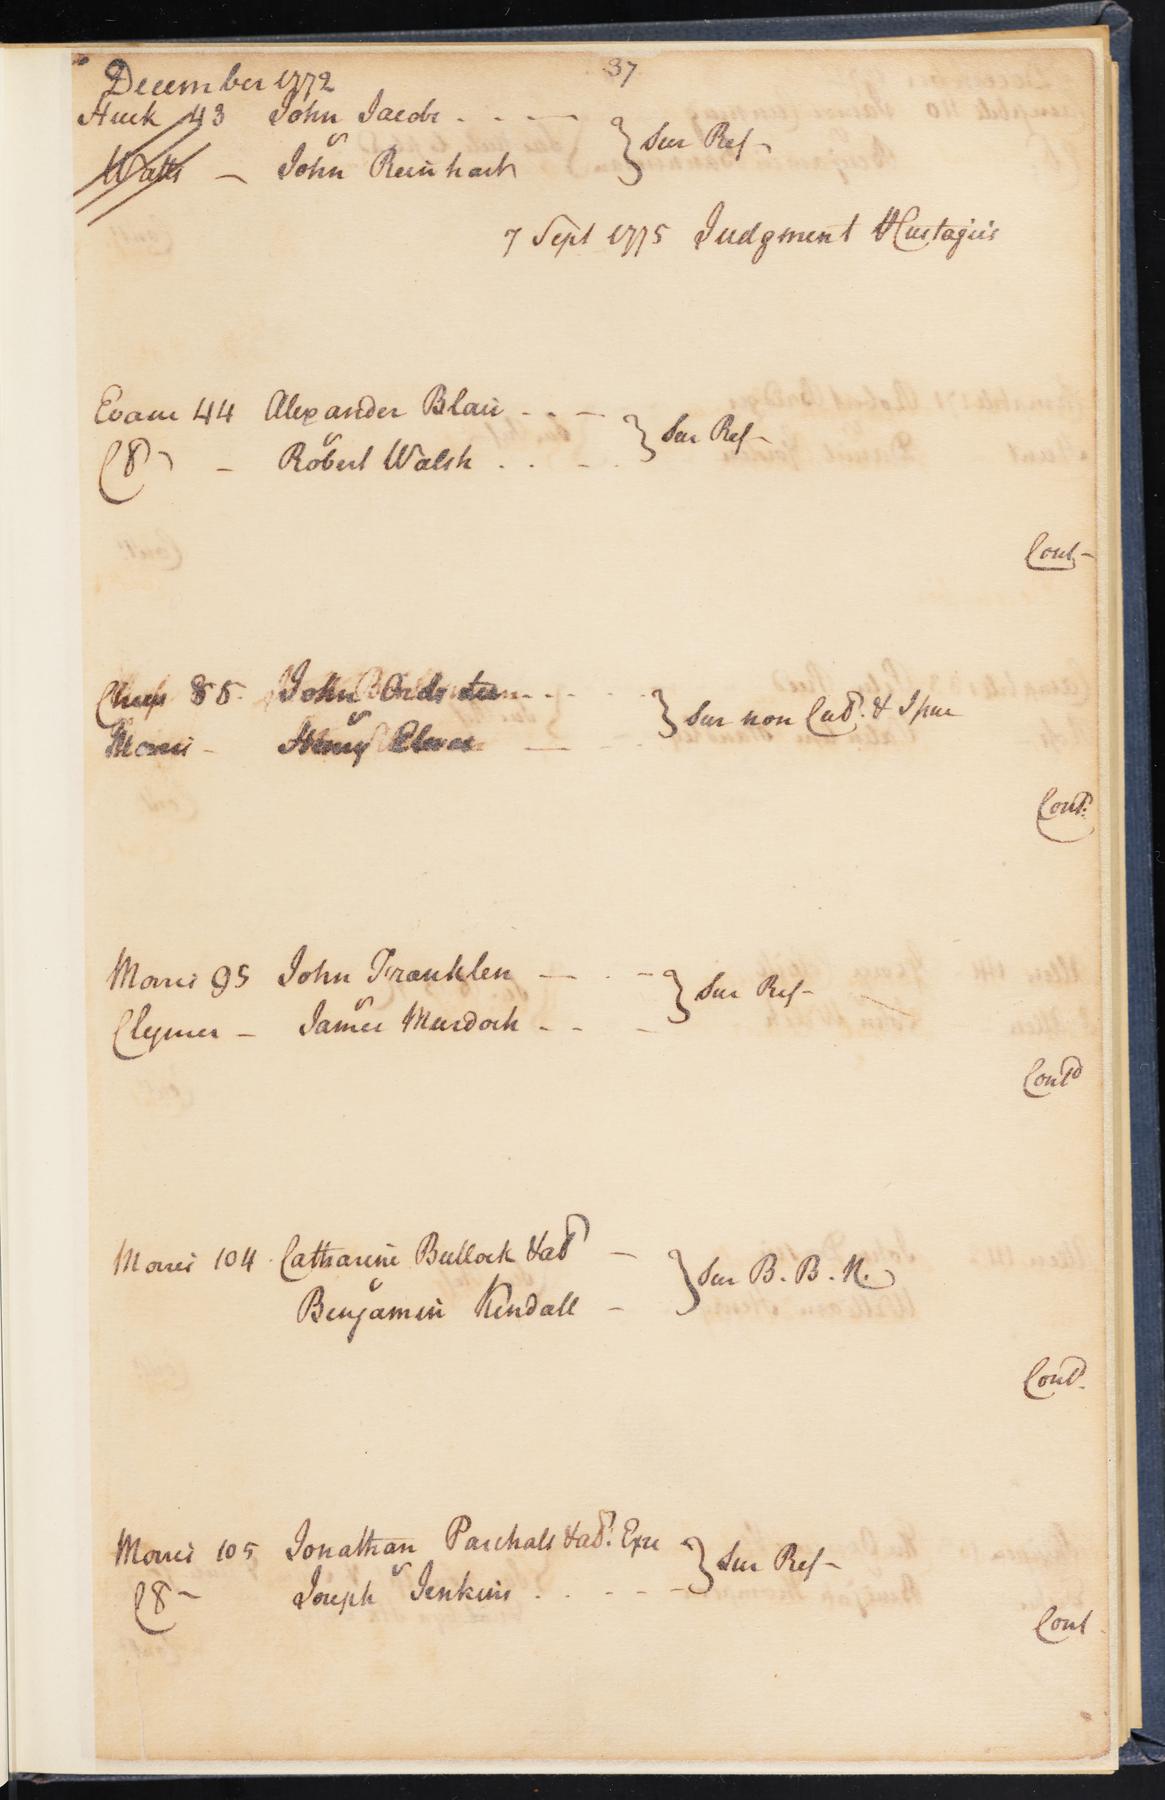 37
December 1772
Huck 43 John Jacobs
v
Watts John Reinhart } Sur Ref
7 Sept 1775 Judgment
Evans 44 Alexander Blair } Sur Ref
v
Robert Walsh
Cont
85 John } Sur non &
v
Morris Henry
Contd.
Morris 95 John Franklen } Sur Ref
v
Clymer James Murdoch
Contd
Morris 104 Catharine Bullock & ad } Sur B. B. N.
v
Benjamin Kendall
Contd.
Morris 105 Jonathan Paschals & ad. Exr } Sur Ref
v
Joseph Jenkins
Cont